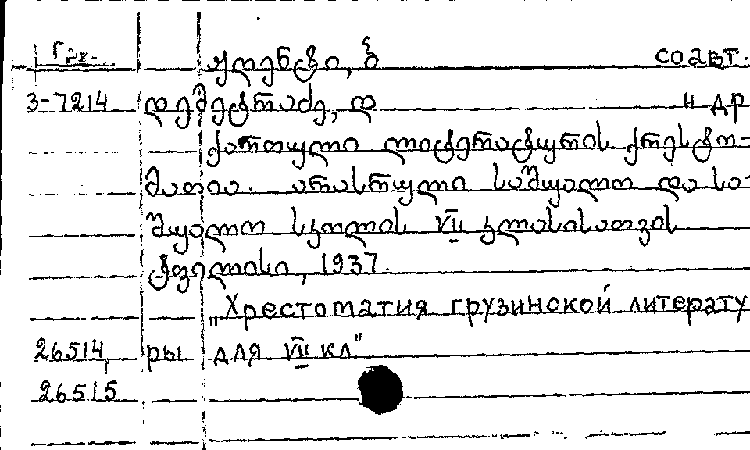 Груз. ჟღენტი, ბ соавт.
3-7214 დემეტრაძე, დ и др
ქართული ლიტერატურის ქრესტო-
მათია. არასრული საშუალო და სა-
შუალო სკოლის VII კლასისათვის
ტფილისი, 1937.
„Хрестоматия грузинской литерату
26514, ры для VII кл"
26515